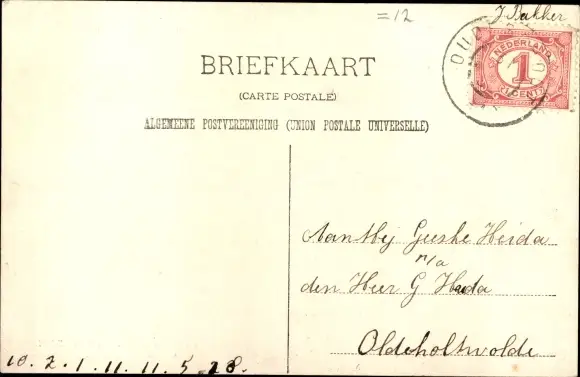 =12
J Bakker
NEDERLAND
1
(1 CENT)
BRIEFKAART
(CARTE POSTALE)
ALGEMEENE POSTVEREENIGING (UNION POSTALE UNIVERSELLE)
Aantbij Geeske Heida
n/a
den Heer G Heida
Oldeholtwolde
10. 2. 1. 11. 11. 5. 18.